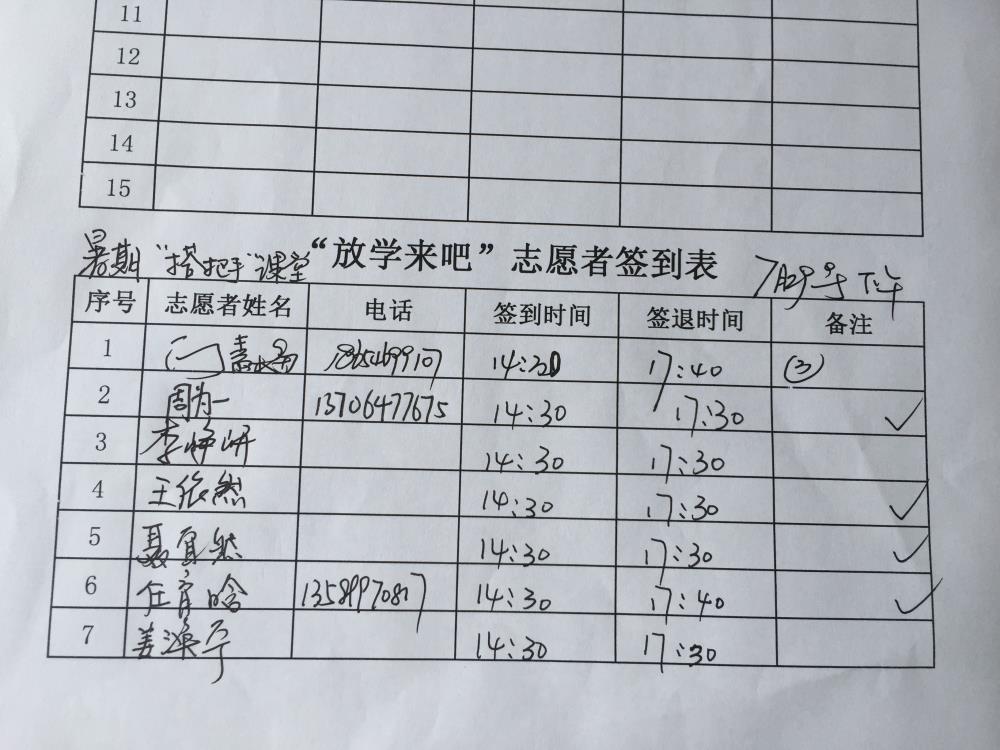 11
12
13
14
15
暑期“搭把手”课堂 “放学来吧”志愿者签到表 7月 下午
序号 志愿者姓名 电话 签到时间 签退时间 备注
1 17:40 ③
2 周为一 13706477675 14:30 17:30 ✓
3 李婷妍 14:30 17:30
4 王依然 14:30 17:30 ✓
5 聂宜然 14:30 17:30 ✓
6 任宵晗 14:30 17:40 ✓
7 姜 14:30 17:30